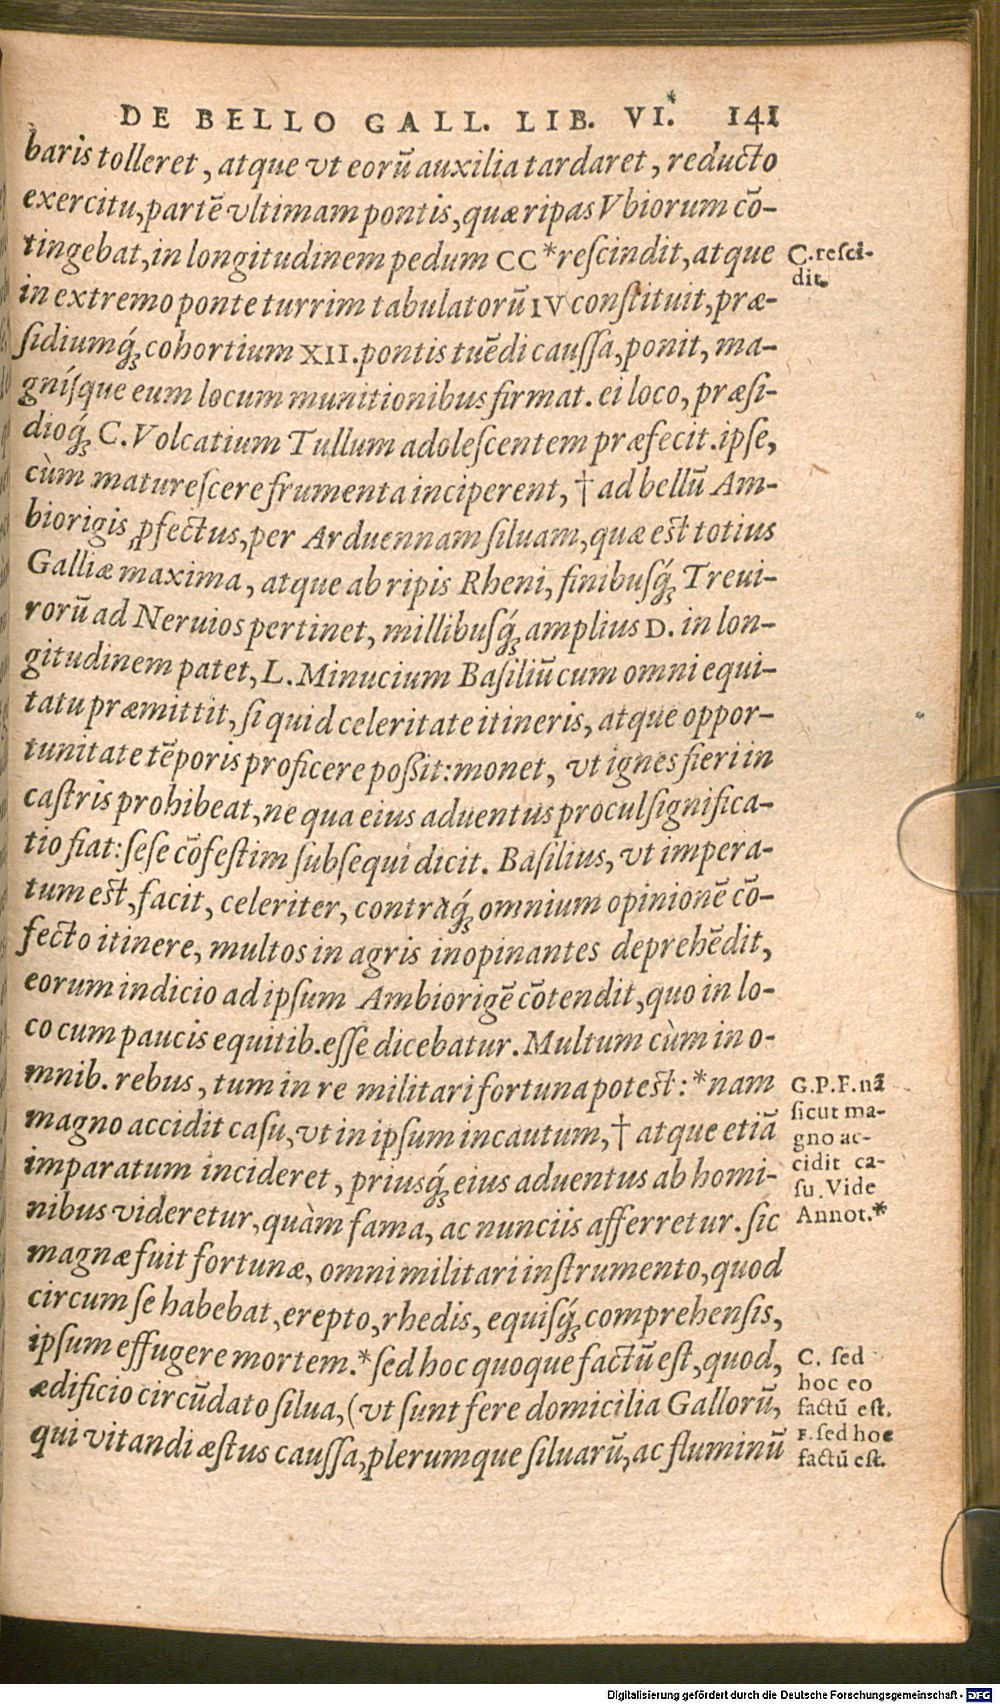 DE BELLO GALL. LIB. VI. 141
baris tolleret, atque vt eorū auxilia tardaret, reducto
exercitu, partē vltimam pontis, quæ ripas Vbiorum cō-
tingebat, in longitudinem pedum CC*reſcindit, atque
in extremo ponte turrim tabulatorū IV conſtituit, præ-
ſidiumq́ꝫ cohortium XII. pontis tuēdi cauſſa, ponit, ma-
gníſque eum locum munitionibus firmat. ei loco, præſi-
dioq́ꝫ C. Volcatium Tullum adoleſcentem præfecit. ipſe,
cùm matureſcere frumenta inciperent, † ad bellū Am-
biorigis ꝓfectus, per Arduennam ſiluam, quæ est totius
Galliæ maxima, atque ab ripis Rheni, finibuſq́ꝫ Treui-
rorū ad Neruios pertinet, millibuſq́ꝫ amplius D. in lon-
gitudinem patet, L. Minucium Baſiliū cum omni equi-
tatu præmittit, ſi quid celeritate itineris, atque oppor-
tunitate tēporis proficere poſsit: monet, vt ignes fieri in
caſtris prohibeat, ne qua eius aduentus procul ſignifica-
tio fiat: ſeſe cōfeſtim ſubſequi dicit. Baſilius, vt impera-
tum est, facit, celeriter, contraq́ꝫ omnium opinionē cō-
fecto itinere, multos in agris inopinantes deprehēdit,
eorum indicio ad ipſum Ambiorigē cōtendit, quo in lo-
co cum paucis equitib. eſſe dicebatur. Multum cùm in o-
mnib. rebus, tum in re militari fortuna potest:*nam
magno accidit caſu, vt in ipſum incautum, † atque etiā
imparatum incideret, priusq́ꝫ eius aduentus ab homi-
nibus videretur, quàm fama, ac nunciis afferretur. ſic
magnæ fuit fortunæ, omni militari inſtrumento, quod
circum ſe habebat, erepto, rhedis, equiſq́ꝫ comprehenſis,
ipſum effugere mortem.*ſed hoc quoque factū eſt, quod,
ædificio circūdato ſilua, (vt ſunt fere domicilia Gallorū,
qui vitandi æſtus cauſſa, plerumque ſiluarū, ac fluminū
C. reſci-
dit.
G.P.F. nā
ſicut ma-
gno ac-
cidit ca-
ſu. Vide
Annot.*
C. ſed
hoc eo
factū eſt.
F. ſed hoc
factū eſt.
Digitalisierung gefördert durch die Deutsche Forschungsgemeinschaft - DFG